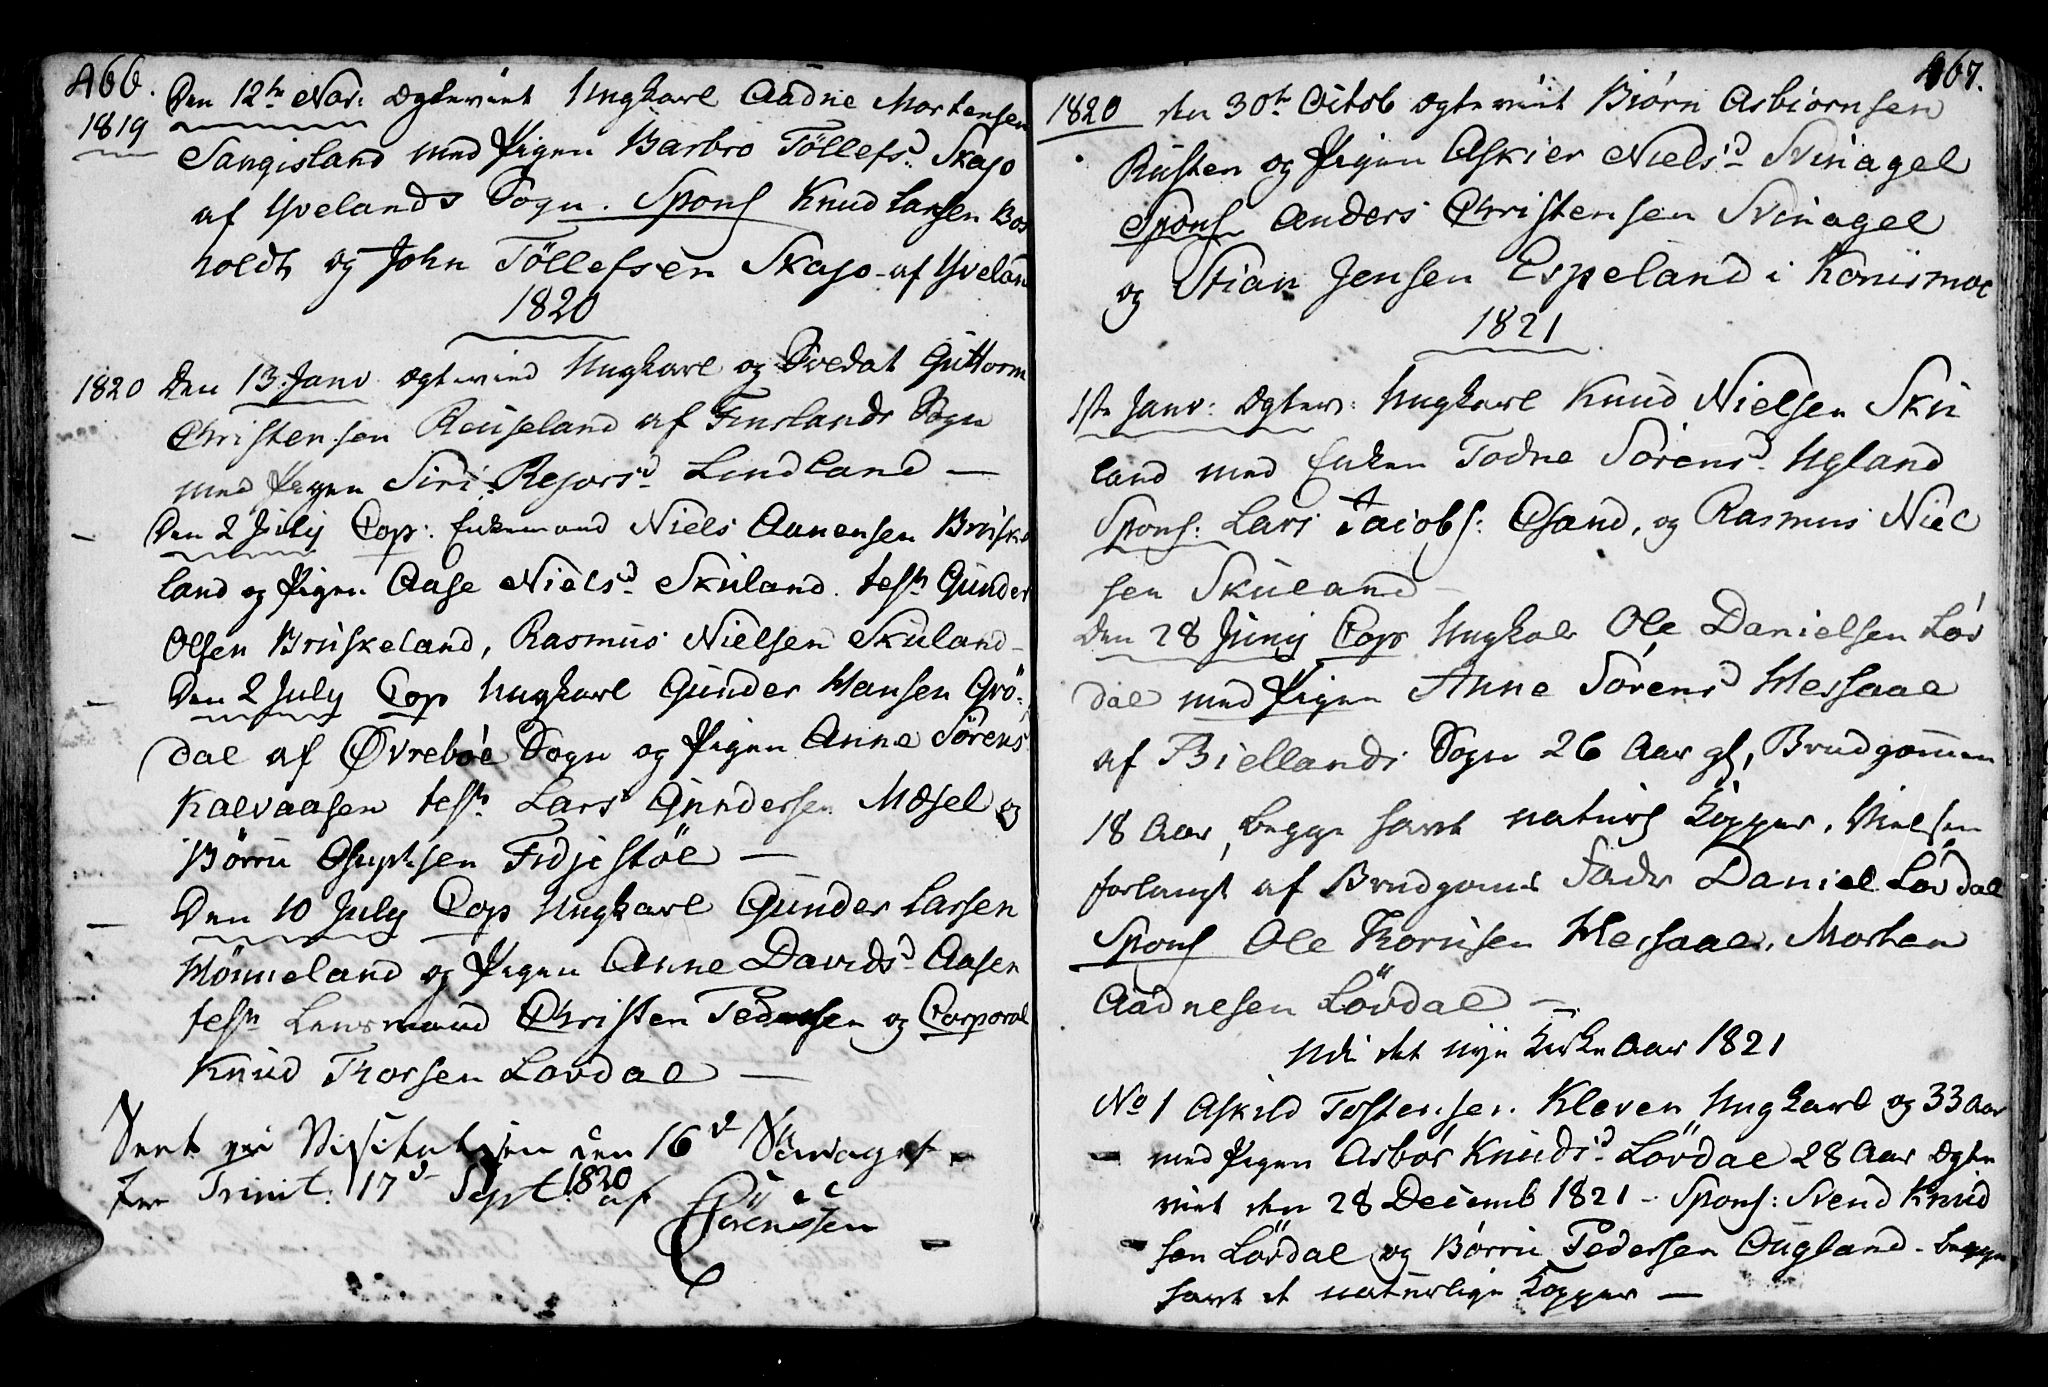 466.
1819
Den 12te Nov: Ægteviet Ungkarl Aadne Mortensen
Sangisland med Pigen Barbro Töllefsd. Skajo
af Yvelands Sogn. Spons Knud Larsen Bos
holdt og John Töllefsen Skajo af Yveland
1820
1820 Den 13 Janv Ægtevied Ungkarl og Svedat Guttorm
Christensen Reuseland af Finslands Sogn
med Pigen Siri Rejorsd. Lindland —
— Den 2 July Cop: Enkemand Niels Aanensen Bruske
land og Pigen Aase Nielsd. Skuland. test. Gunder
Olsen Bruskeland, Rasmus Nielsen Skuland —
— Den 2 July Cop Ungkarl Gunder Hansen Grö-
dal af Øvreböe Sogn og Pigen Anne Sörens
Kalvaasen test. Lars Gundersen Mæsel og
Börru Fidjestöl —
— Den 10 July Cop Ungkarl Gunder Larsen
Hönneland og Pigen Anne Davidsd. Aasen
test. Lensmand Christen Pedersen og Corporal
Knud Thorsen Lövdal —
Seet ved Visitatsen den 16d
Trinit: 17d Sept. 1820 af
Sörenssen
467.
1820 den 30te Octob Ægteviet Biörn Asbiornsen
Rusten og Pigen Askier Nielsd. Svinagel
Spons Anders Christensen Svinagel
og Stian Jensen Espeland i Konismoe
1821
1ste Janv: Ægtev: Ungkarl Knud Nielsen Sku
land med Enken Todne Sörensd. Ugland
Spons: Lars Jacobs: Osand, og Rasmus Niel
sen Skuland —
Den 28 Junij Cop Ungkalr Ole Danielsen Löv
dal med Pigen Anne Sörensd Hessaae
af Biellands Sogn 26 Aar gl, Brudgommen
18 Aar, begge havt naturl Kopper, Vielsen
forlangt af Brudgoms Fader Daniel Lövdal
Spons Ole Thorusen Hessaae, Morten
Aadnesen Lövdal —
Udi det nye Kirke Aar 1821
No 1 Askild Tostensen Kleven Ungkarl og 33 Aar
— med Pigen Asbor Knudsd. Lövdal 28 Aar Ægte
viet den 28 Decemb 1821 — Spons: Svend Knud
— sen Lövdal og Börru Pedersen Ougland — begge
havt d naturlige Kopper —